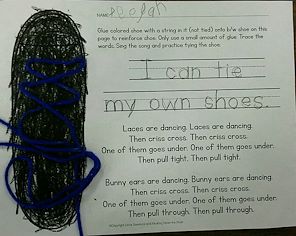 NAME:
Glue colored shoe with a string in it (not tied) onto b/w shoe on this
page to reinforce shoe. Only use a small amount of glue. Trace the
words. Sing the song and practice tying the shoe.
I can tie
my own shoes.
Laces are dancing. Laces are dancing.
Then criss cross. Then criss cross.
One of them goes under. One of them goes under.
Then pull tight. Then pull tight.
Bunny ears are dancing. Bunny ears are dancing.
Then criss cross. Then criss cross.
One of them goes under. One of them goes under.
Then pull through. Then pull through.